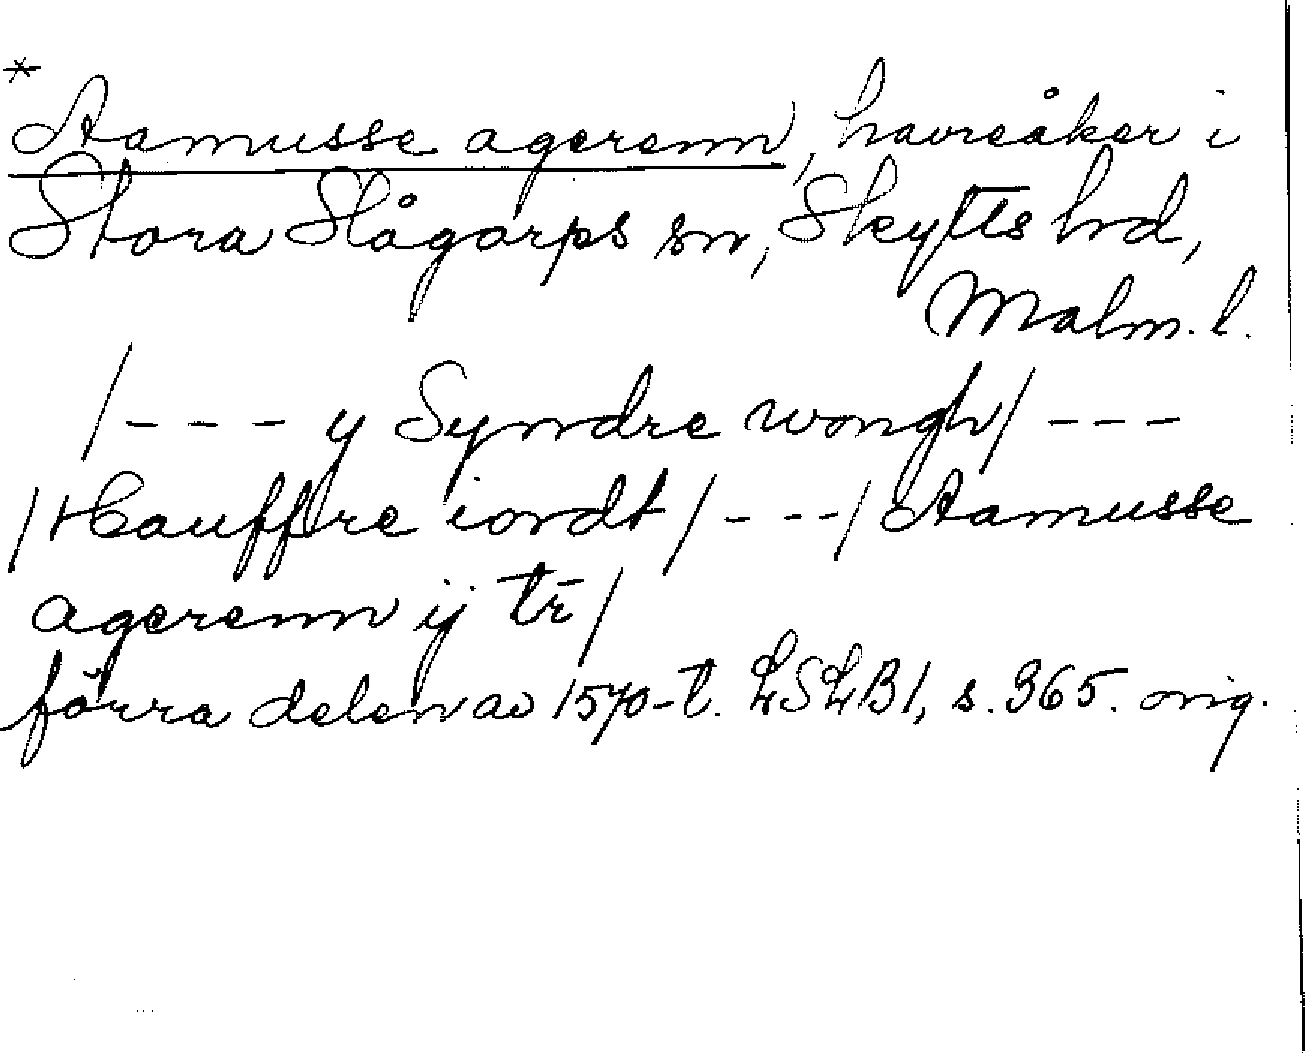 *
Aamusse agerenn, havreåker i
Stora Slågarps sn, Skytts hd,
Malm. l.
/--- y Syndre wongh/ ---
/Hauffre iordt/---/Aamusse
agerenn ij tr̄/
förra delen av 1570-t. LSLB1, s. 365. orig.